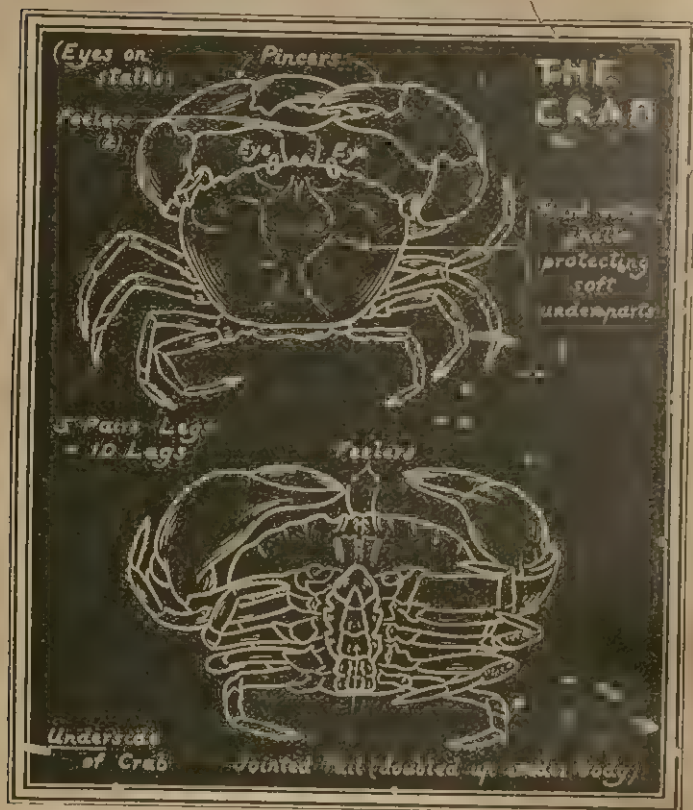 (Eyes on
stalks)
Pincers
THE
CRAB
Feelers
(2)
Eye
Eye
shell
protecting
soft
underparts
5 Pairs Legs
= 10 Legs
Feelers
Underside
of Crab
Jointed tail (doubled up under body)